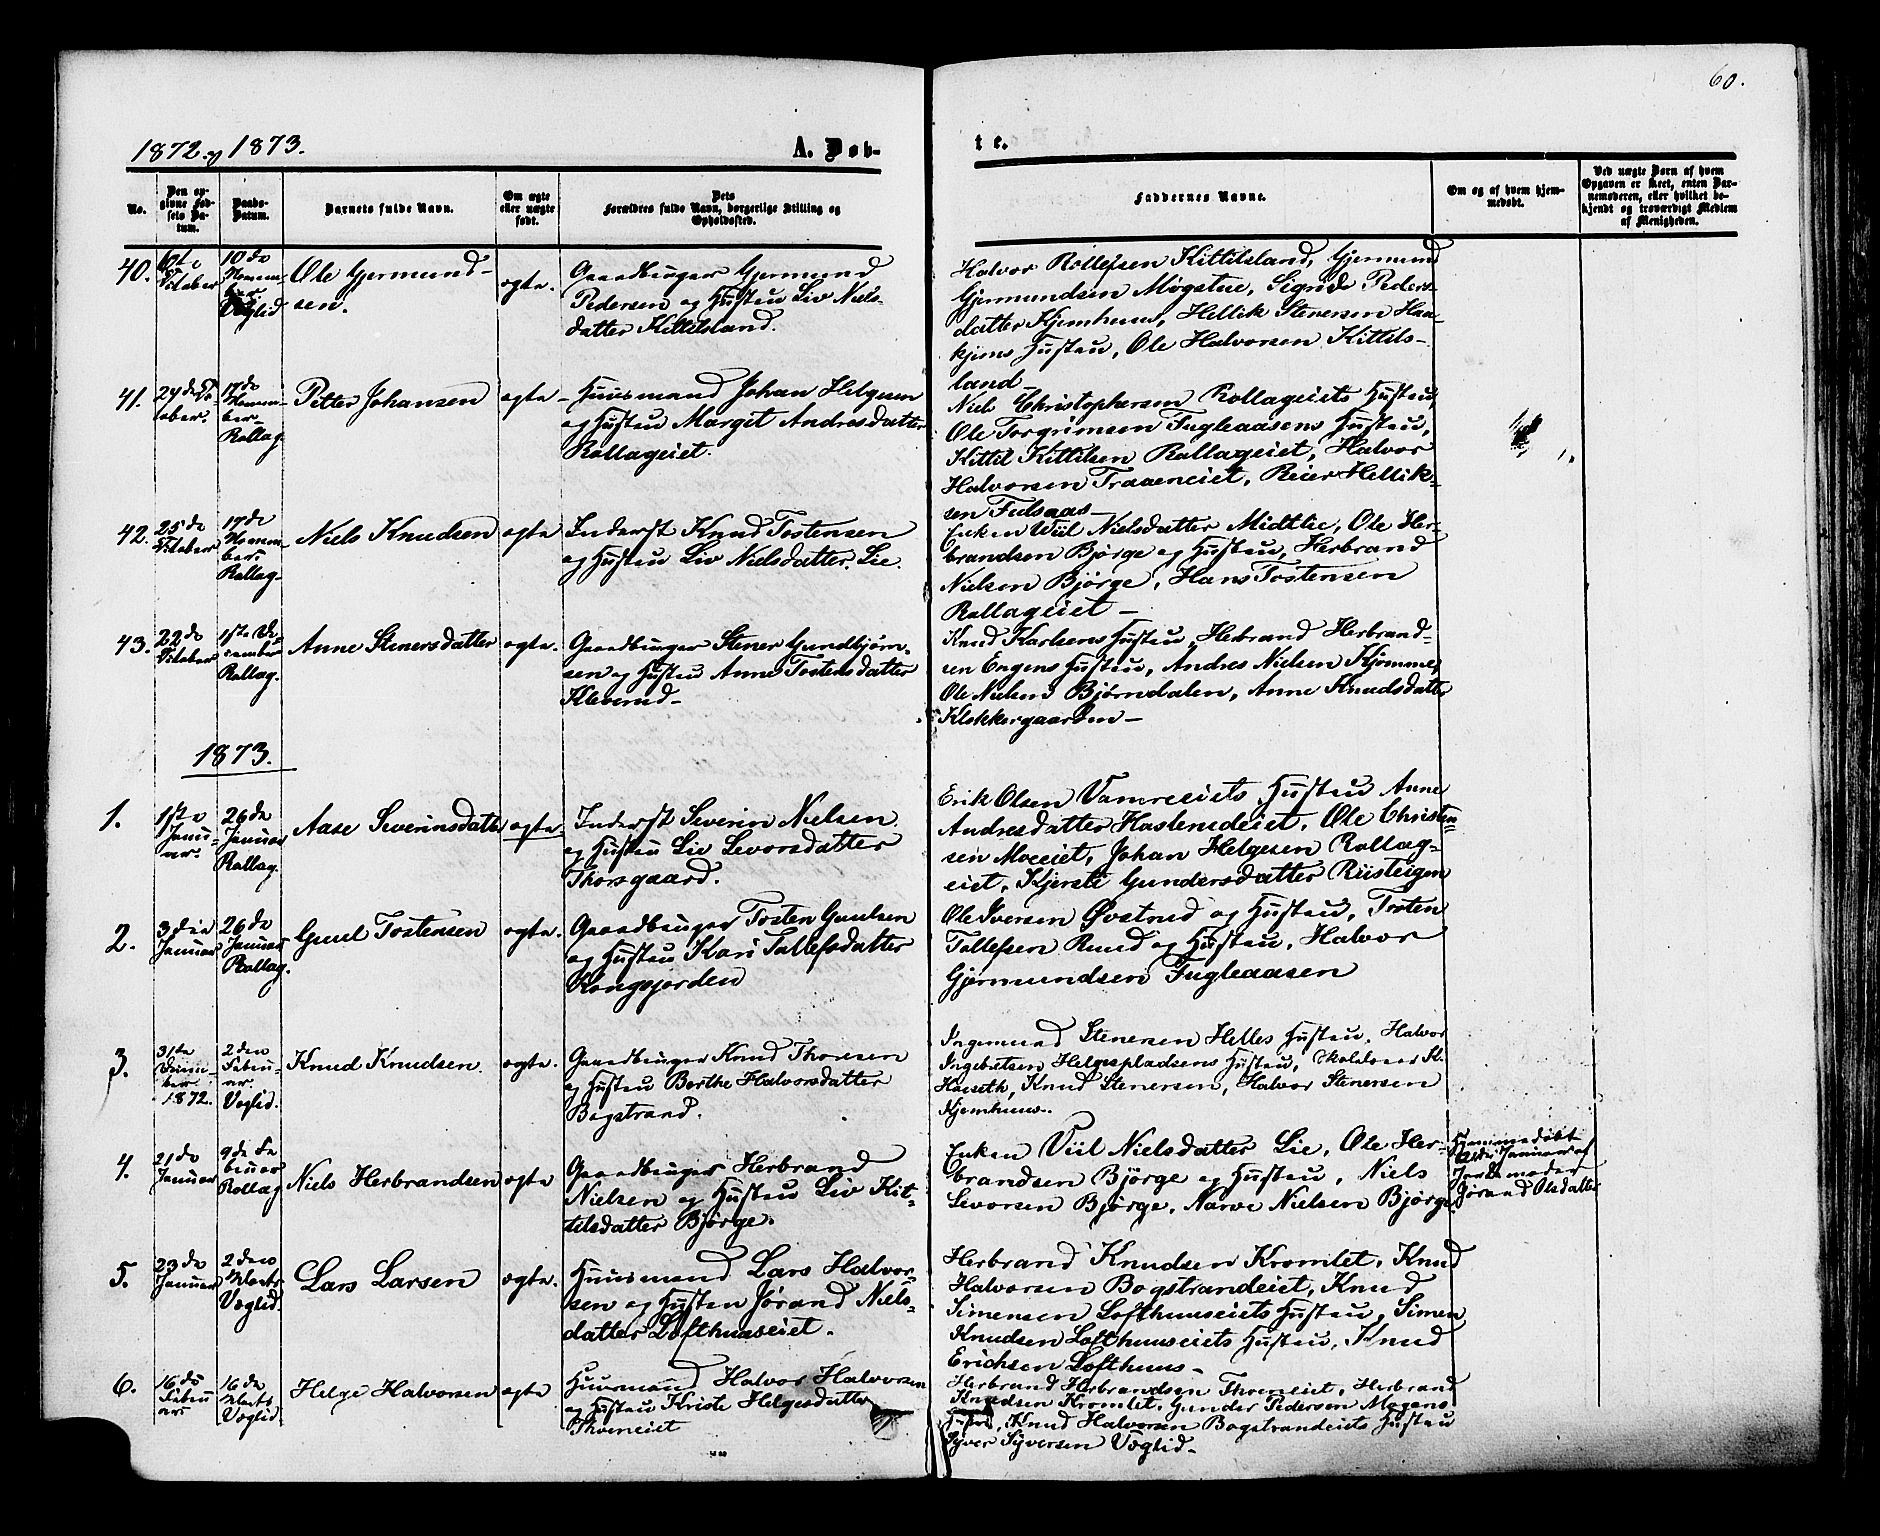 60.
1872 og 1873.
A. Døb-
te.
No.
Den op-
givne Fød-
sels Da-
tum.
Daabs-
Datum.
Barnets fulde Navn.
Om ægte
eller uægte
født.
Dets
Forældres fulde Navn, borgerlige Stilling og
Opholdssted.
Faddernes Navne.
Om og af hvem hjem-
medøbt.
Ved uægte Børn af hvem
Opgaven er skeet, enten Bar-
nemoderen, eller hvilket be-
kjendt og troværdigt Medlem
af Menigheden.
40.
October
10de
Novem-
ber
Veglid
Ole Gjermund-
sen.
ægte.
Gaardbruger Gjermund
Pedersen og Hustru Liv Niels-
datter Kittilsland.
Halvor Rollefsen Kittilsland, Gjermund
Gjermundsen Møgstue, Sigrid Peders-
datter Kjemhuus, Hellik Stenersen Haa-
kjems Hustru, Ole Halvorsen Kittils-
land
41.
24de Oc-
tober.
17de
Novem-
ber
Rollag
Petter Johansen
ægte
Huusmand Johan Helgesen
og Hustru Margit Andresdatter
Rollageiet.
Niels Christophersen Rollageiets Hustru,
Ole Torgrimsen Fugleaasens Hustru,
Kittil Kittilsen Rollageiet, Halvor
Halvorsen Traaeneiet, Reier Hellik-
sen Fulsaas
42.
25de
October
17de
Novem-
ber.
Rollag
Niels Knudsen
ægte
Inderst Knud Tostensen
og Hustru Liv Nielsdatter Lie.
Enken Viil Nielsdatter Midtlie, Ole Her-
brandsen Bjørge og Hustru, Herbrand
Nielsen Bjørge, Hans Tostensen
Rollageiet
43.
22de
October
1ste De-
cember
Rollag.
Anne Stenersdatter
ægte.
Gaardbruger Stener Gundbjørn-
sen og Hustru Anne Tostensdatter
Kleverud
Knud Karlsens Hustru, Herbrand Herbrand-
sen Engens Hustru, Andres Nielsen Kjomme,
Ole Nielsen Bjørndalen, Anne Knudsdatter
Klokkergaarden
1873.
1.
1ste
Janu-
ar.
26de
Januar
Rollag.
Aase Severinsdatter
ægte
Inderst Severin Nielsen
og Hustru Liv Levorsdatter
Thorsgaard.
Erik Olsen Vamreeiets Hustru Anne
Andresdatter Haslemoeiet, Ole Christen-
sen Moeeiet, Johan Helgesen Rollag-
eiet, Kjersti Gundersdatter Riisteigen
2.
3die
Januar
26de
Januar
Rollag.
Guul Tostensen
ægte.
Gaardbruger Tosten Guulsen
og Hustru Kari Tollefsdatter
Kongsjorden
Ole Iversen Øvstrud og Hustru, Tosten
Tollefsen Ruud og Hustru, Halvor
Gjermundsen Fugleaasen
3.
31te
Decem-
ber
1872.
2den
Februar
Veglid.
Knud Knudsen
ægte.
Gaardbruger Knud Thoresen
og Hustru Berthe Halvorsdatter
Bogstrand.
Ingemund Stenersen Helles Hustru, Halvor
Ingebretsen Helgespladsens Hustru,
Haeseth, Knud Stenersen, Halvor Stenersen
Kjemhuus.
4.
21de
Januar
9de Fe-
bruar
Rollag
Niels Herbrandsen
ægte
Gaardbruger Herbrand
Nielsen og Hustru Liv Kit-
tilsdatter Bjørge.
Enken Viil Nielsdatter Lie, Ole Her-
brandsen Bjørge og Hustru, Niels
Levorsen Bjørge, Narve Nielsen Bjørge
Hjemmedøbt
Januar af
Jordemoder
Jørand Olsdatter
5.
23de
Januar
2den
Marts
Veglid.
Lars Larsen
ægte.
Huusmand Lars Halvor-
sen og Hustru Jørand Niels-
datter Lofthuuseiet.
Herbrand Knudsen Kromlet, Knud
Halvorsen Bogstrandeiet, Knud
Simensen Lofthuuseiets Hustru, Simen
Knudsen Lofthuuseiets Hustru, Knud
Erichsen Lofthuus
6.
16de
Febru-
ar
16de
Marts
Veglid
Helge Halvorsen
ægte
Huusmand Halvor Halvorsen
og Hustru Kristi Helgesdatter
Thoeneiet
Herbrand Herbrandsen Thoeneiet, Herbrand
Knudsen Kromlet, Gunder Pedersen Mogens
Hustru, Knud Halvorsen Bogstrandeiets Hustru
Syver Syversen Veglid